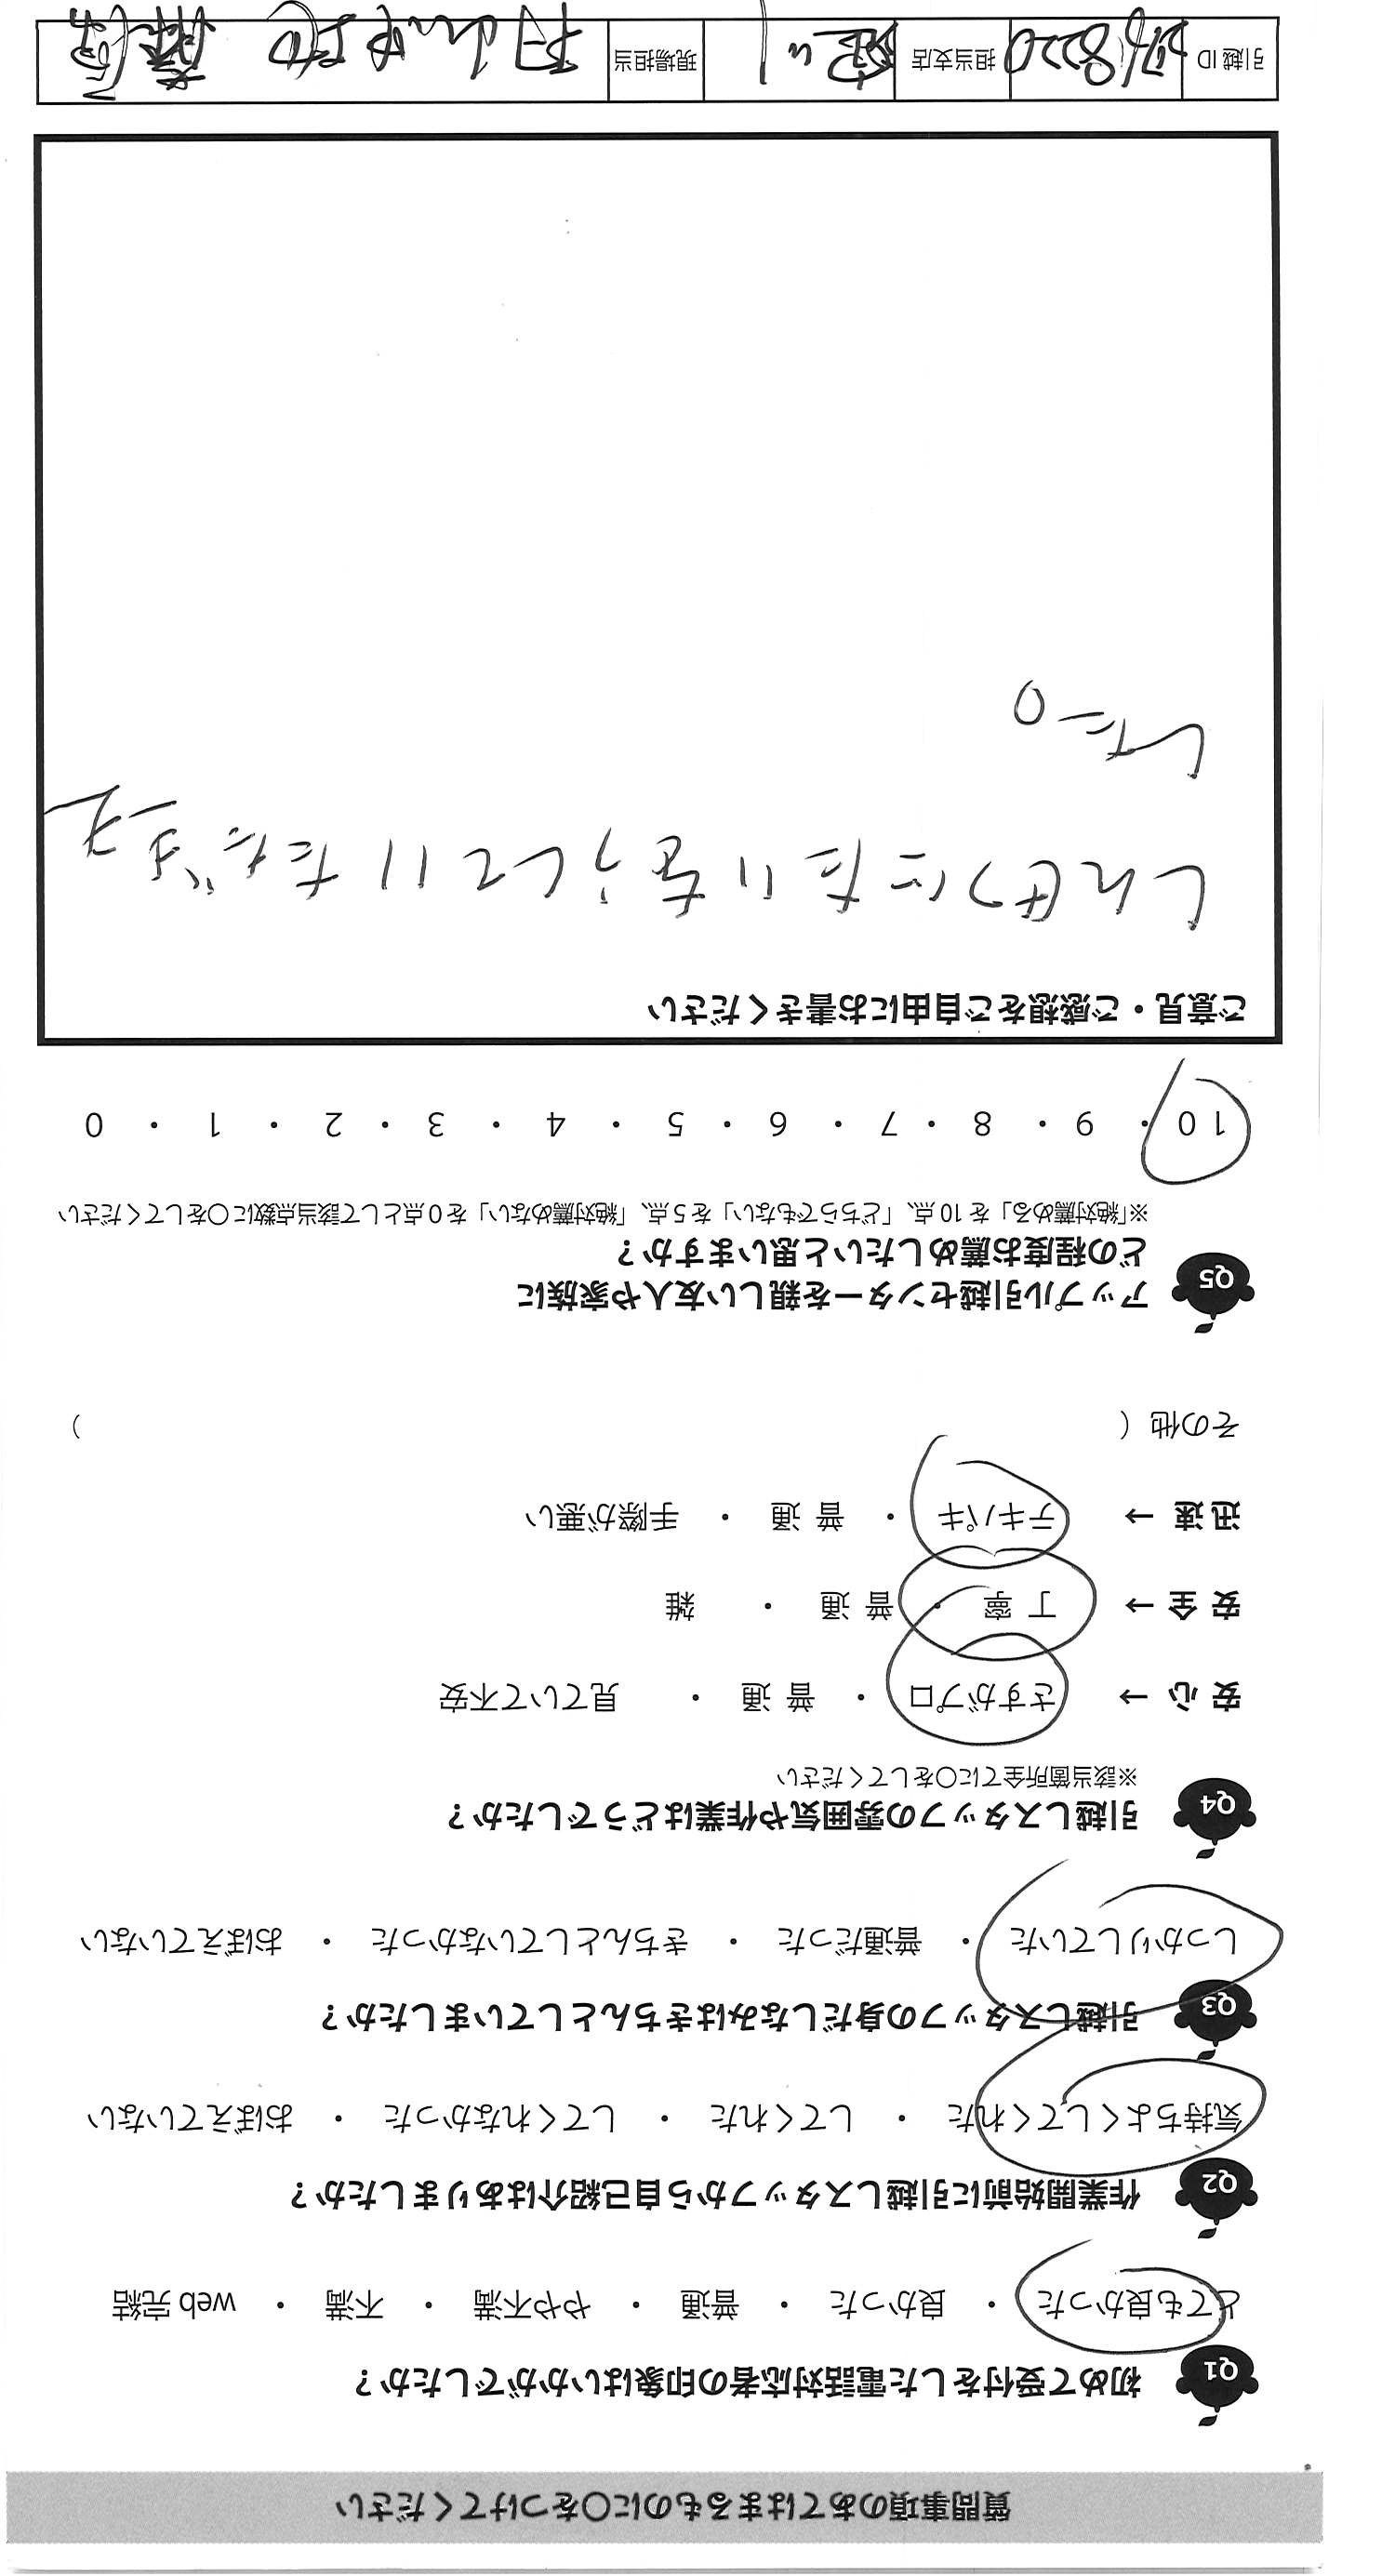 質問事項のあてはまるものに○をつけてください
Q1 初めて受付をした電話対応者の印象はいかがでしたか？
とても良かった ・ 良かった ・ 普通 ・ やや不満 ・ 不満 ・ web 完結
Q2 作業開始前に引越しスタッフから自己紹介はありましたか？
気持ちよくしてくれた ・ してくれた ・ してくれなかった ・ おぼえていない
Q3 引越しスタッフの身だしなみはきちんとしていましたか？
しっかりしていた ・ 普通だった ・ きちんとしていなかった ・ おぼえていない
Q4 引越しスタッフの雰囲気や作業はどうでしたか？
※該当箇所全てに○をしてください
安 心 → さすがプロ ・ 普 通 ・ 見ていて不安
安 全 → 丁 寧 ・ 普 通 ・ 雑
迅 速 → テキパキ ・ 普 通 ・ 手際が悪い
その他（ ）
Q5 アップル引越センターを親しい友人や家族に
どの程度お薦めしたいと思いますか？
※「絶対薦める」を 10 点、「どちらでもない」を 5 点、「絶対薦めない」を 0 点として該当点数に○をしてください
10 ・ 9 ・ 8 ・ 7 ・ 6 ・ 5 ・ 4 ・ 3 ・ 2 ・ 1 ・ 0
ご意見・ご感想をご自由にお書きください
しんせつにたいをうしていただきま
した。
引越 ID 担当支店 現場担当